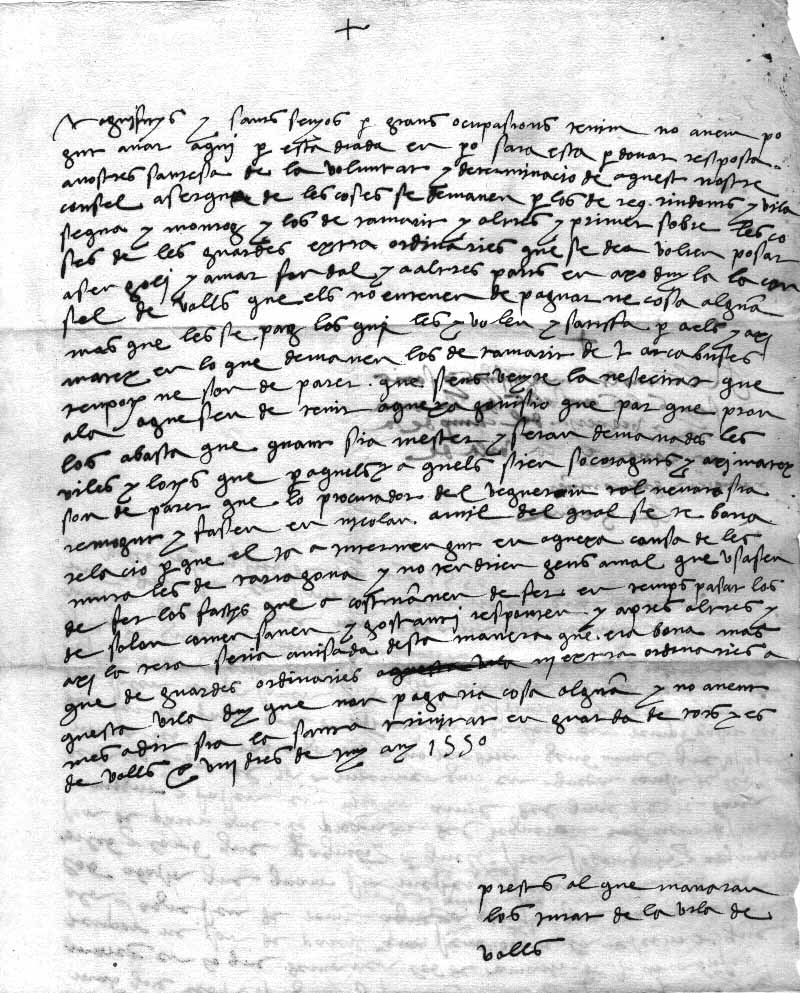 Magnifichs y savis senyos p grans ocupasions tenim no avem po
gut anar aqui p esta diada en po sara esta p donar resposta
a vostres savieses de la voluntat y determinacio de aquest nostre
consel aserqua de les coses se demanen p los de reg. riudoms y vila
segua y monroig y los de tamarit y altres y primer sobre les co
ses de les guardes extra ordinaries que se dea volien posar
a sen goli y a mar fondal y a altres parts en axo diu la con
sel de valls que els no entenen de paguar ne cosa alguna
mas que les se pag los qui les y volen y satisfa p aels y axi
matex en lo que demanen los de tamarit de arcabuses
tenpoc ne son de parer que sens veure la nesesitat que
ala aguesen de tenir aquexa que par que prou
los abasta que quant sia mester y seran demanades les
viles y lochs que p aquels y a quels sien socoreguts y axi matex
son de parer que lo procurador del veguer sia
remogut y fasen en nicolau amil del qual se te bona
relacio p que el sa a entervengut en aquexa causa de les
muralles de tarragona y no tendrien gens a mal que usasen
de fer los fachs que a costumaven de fer en temps pasat los
de solon comensaven y constanti responien y apres altres y
axi la tera seria avisada desta manera que era bona mas
que de guardes ordinaries ni extra ordinaries a
questa vila diu que non pagaria cosa alguna y no avent
mes a dir sia la santa trinitat en guarda de tots y es
de valls a viii dies de juny any 1550
prests al que manaran
los jurat de la vila de
valls